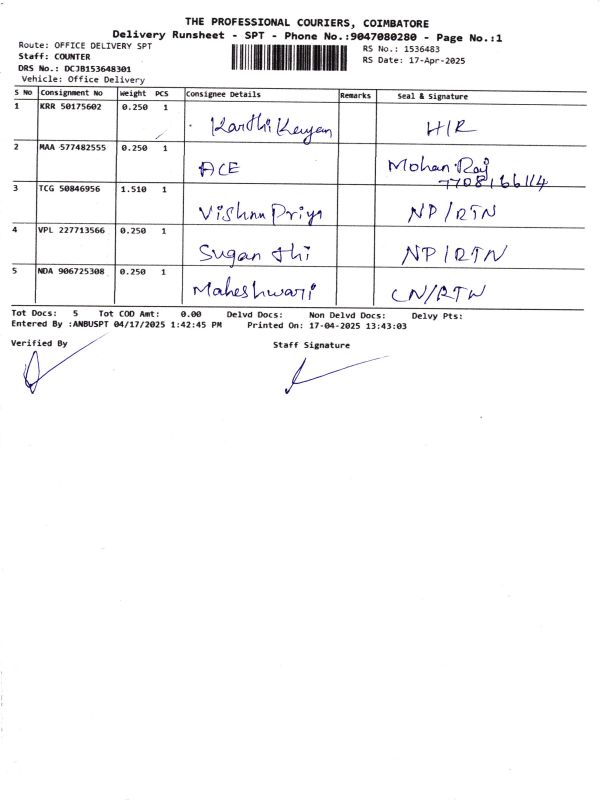 THE PROFESSIONAL COURIERS, COIMBATORE
Delivery Runsheet - SPT - Phone No.:9047080280 - Page No.:1
Route: OFFICE DELIVERY SPT RS No.: 1536483
Staff: COUNTER RS Date: 17-Apr-2025
DRS No.: DCJB153648301
Vehicle: Office Delivery
S No Consignment No Weight PCS Consignee Details Remarks Seal & Signature
1 KRR 50175602 0.250 1 Karthi Keyan H/R
2 MAA 577482555 0.250 1 ACE Mohan Raj
7708166114
3 TCG 50846956 1.510 1 Vishnu Priya NP/RTN
4 VPL 227713566 0.250 1 Sugan thi NP/RTN
5 NDA 906725308 0.250 1 Maheshwari CN/RTN
Tot Docs: 5 Tot COD Amt: 0.00 Delvd Docs: Non Delvd Docs: Delvy Pts:
Entered By :ANBUSPT 04/17/2025 1:42:45 PM Printed On: 17-04-2025 13:43:03
Verified By Staff Signature